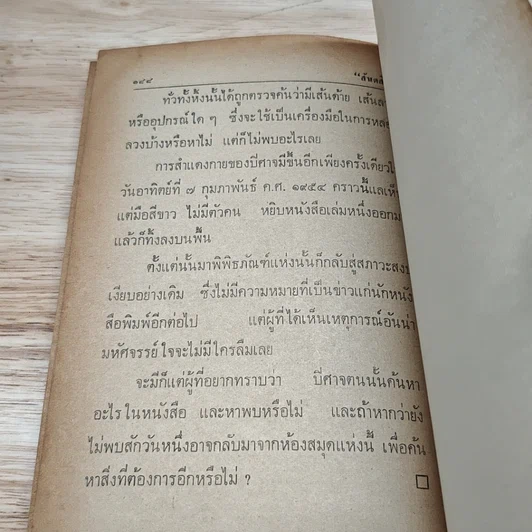 ๑๔๔
ทั่วทั้งห้องนั้นได้ถูกตรวจค้นว่ามีเส้นด้าย
หรืออุปกรณ์ใด ๆ ซึ่งจะใช้เป็นเครื่องมือในการหลอก
ลวงบ้างหรือหาไม่ แต่ก็ไม่พบอะไรเลย
การสำแดงกายของปีศาจมีขึ้นอีกเพียงครั้งเดียวใ
วันอาทิตย์ที่ ๗ กุมภาพันธ์ ค.ศ. ๑๙๕๔ คราวนี้แลเห็
แต่มือสีขาว ไม่มีตัวคน หยิบหนังสือเล่มหนึ่งออกม
แล้วก็ทิ้งลงบนพื้น
ตั้งแต่นั้นมาพิพิธภัณฑ์แห่งนั้นก็กลับสู่สภาวะสงบ
เงียบอย่างเดิม ซึ่งไม่มีความหมายที่เป็นข่าวแก่นักหนัง
สือพิมพ์อีกต่อไป แต่ผู้ที่ได้เห็นเหตุการณ์อันน่า
มหัศจรรย์ใจจะไม่มีใครลืมเลย
จะมีก็แต่ผู้ที่อยากทราบว่า ปีศาจตนนั้นค้นหา
อะไรในหนังสือ และหาพบหรือไม่ และถ้าหากว่ายัง
ไม่พบสักวันหนึ่งอาจกลับมาจากห้องสมุดแห่งนี้ เพื่อค้น
หาสิ่งที่ต้องการอีกหรือไม่ ?